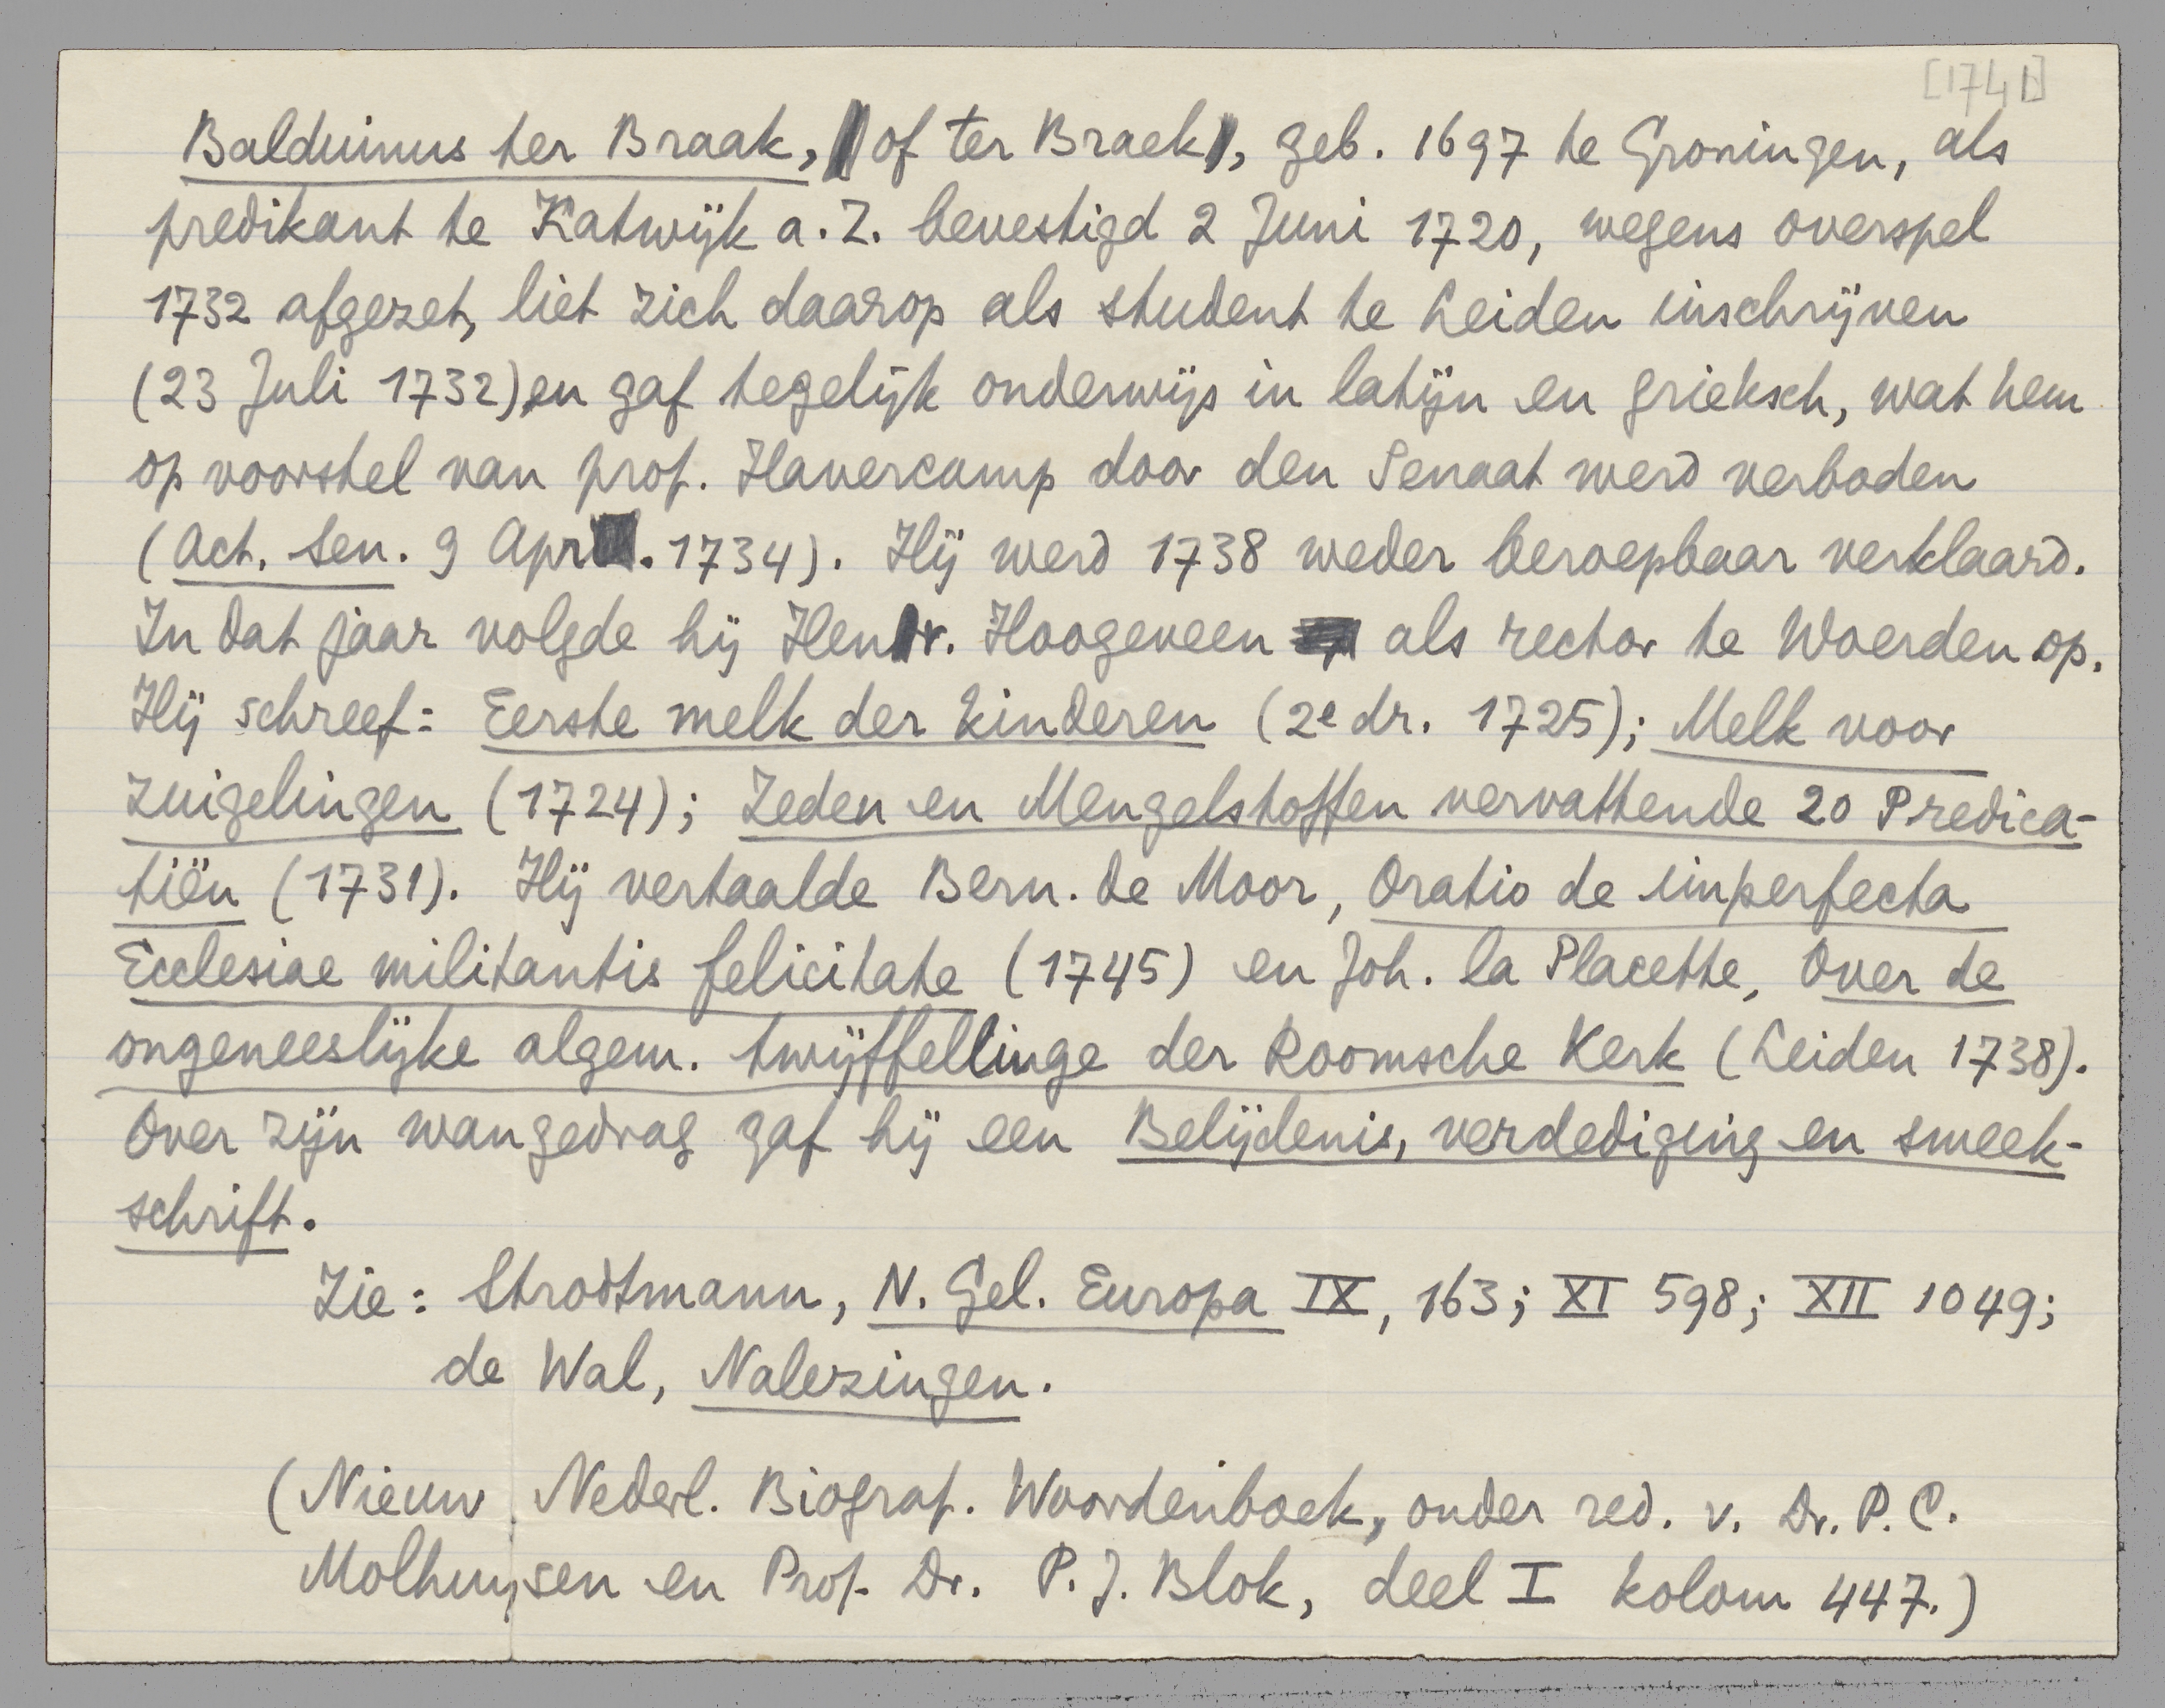 [174 b]
Balduinus ter Braak, of ter Braek, geb. 1697 te Groningen, als
predikant te Katwijk a. Z. bevestigd 2 Juni 1720, wegens overspel
1732 afgezet, liet zich daarop als student te Leiden inschrijven
(23 Juli 1732) en gaf tegelijk onderwijs in latijn en grieksch, wat hem
op voorstel van prof. Havercamp door den Senaat werd verboden
(Act. Sen. 9 Apr. 1734). Hij werd 1738 weder beroepbaar verklaard.
In dat jaar volgde hij Henr. Hoogeveen als rector te Woerden op.
Hij schreef: Eerste melk der kinderen (2e dr. 1725); Melk voor
zuigelingen (1724); Zeden en Mengelstoffen vervattende 20 Predica-
tiën (1731). Hij vertaalde Bern. de Moor, Oratio de imperfecta
Ecclesiae militantis felicitate (1745) en Joh. la Placette, Over de
ongeneeslijke algem. twijffellinge der Roomsche Kerk (Leiden 1738).
Over zijn wangedrag gaf hij een Belijdenis, verdediging en smeek-
schrift.
Zie: Strodtmann, N. Gel. Europa IX, 163; XI 598; XII 1049;
de Wal, Nalezingen.
(Nieuw Nederl. Biograf. Woordenboek, onder red. v. Dr. P. C.
Molhuysen en Prof. Dr. P. J. Blok, deel I kolom 447.)